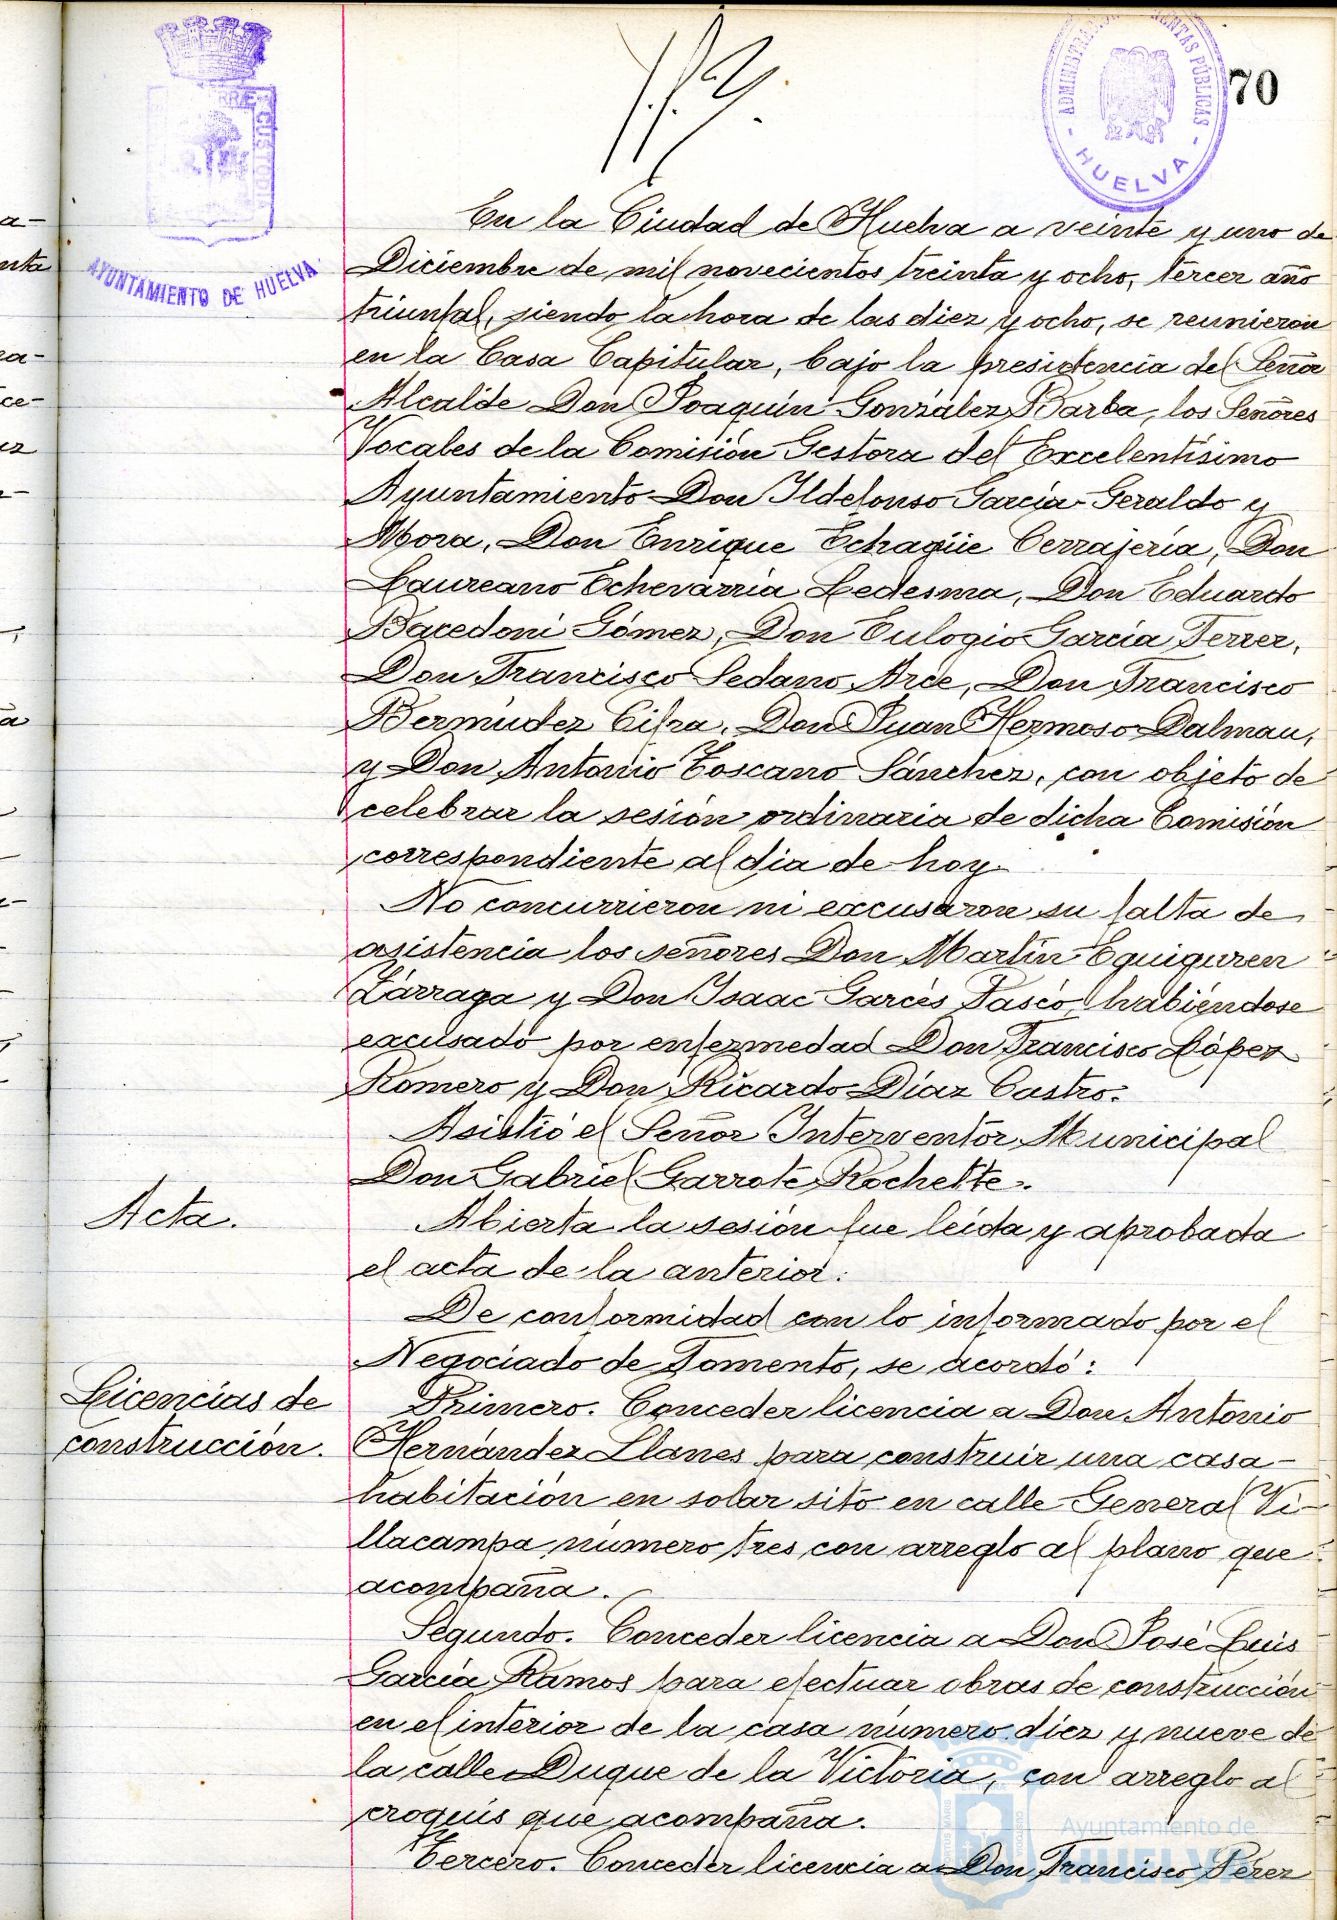 70
ADMINISTRACIÓN RENTAS PÚBLICAS
- HUELVA -
CUSTODIA
AYUNTAMIENTO DE HUELVA
En la Ciudad de Huelva a veinte y uno de
Diciembre de mil novecientos treinta y ocho, tercer año
triunfal, siendo la hora de las diez y ocho, se reunieron
en la Casa Capitular, bajo la presidencia del Señor
Alcalde Don Joaquín González Barba, los Señores
Vocales de la Comisión Gestora del Excelentísimo
Ayuntamiento Don Ildefonso García-Geraldo y
Mora, Don Enrique Echagüe Cerrajería, Don
Laureano Echevarría Ledesma, Don Eduardo
Bacedoni Gómez, Don Eulogio García Ferrer,
Don Francisco Sedano Arce, Don Francisco
Bermúdez Cifra, Don Juan Hermoso Dalmau,
y Don Antonio Toscano Sánchez, con objeto de
celebrar la sesión ordinaria de dicha Comisión
correspondiente al día de hoy.
No concurrieron ni excusaron su falta de
asistencia los señores Don Martín Eguiguren
Zárraga y Don Isaac Garcés Pascó, habiéndose
excusado por enfermedad Don Francisco López
Romero y Don Ricardo Díaz Castro.
Asistió el Señor Interventor Municipal
Don Gabriel Garrote Rochette.
Acta.
Abierta la sesión fue leída y aprobada
el acta de la anterior.
De conformidad con lo informado por el
Negociado de Fomento, se acordó:
Licencias de
construcción.
Primero. Conceder licencia a Don Antonio
Hernández Llanes para construir una casa-
habitación en solar sito en calle General Vi-
llacampa número tres con arreglo al plano que
acompaña.
Segundo. Conceder licencia a Don José Luis
García Ramos para efectuar obras de construcción
en el interior de la casa número diez y nueve de
la calle Duque de la Victoria, con arreglo al
croquis que acompaña.
Tercero. Conceder licencia a Don Francisco Pérez
Ayuntamiento de
HUELVA